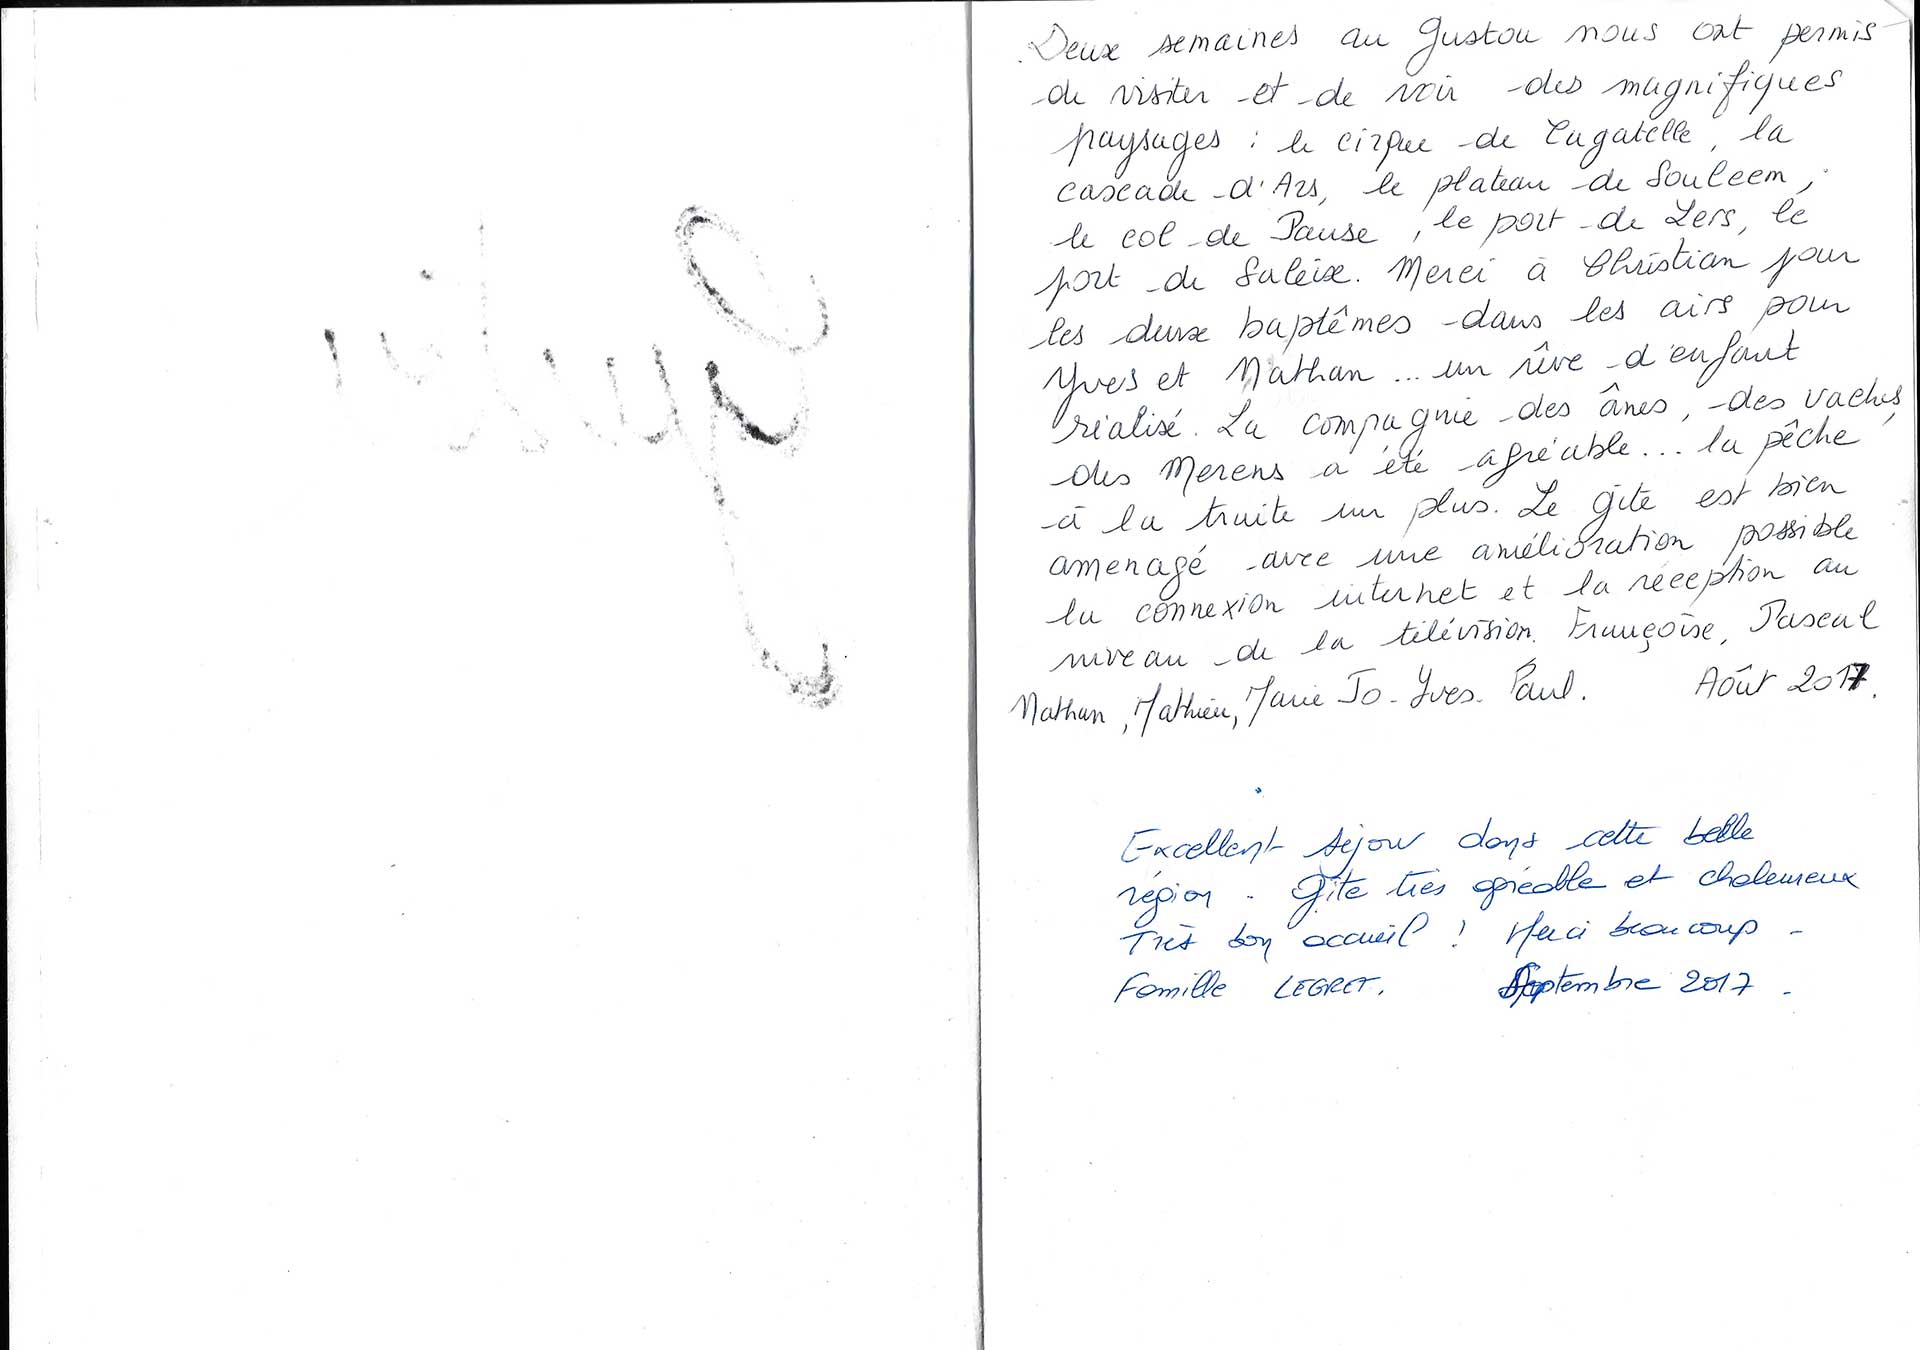 Deux semaines au Gustou nous ont permis
de visiter et de voir des magnifiques
paysages : le cirque de Cagatelle, la
cascade d'Ars, le plateau de Souleem,
le col de Pause, le port de Lers, le
port de Saleix. Merci à Christian pour
les deux baptêmes dans les airs pour
Yves et Nathan... un rêve d'enfant
réalisé. La compagnie des ânes, des vaches,
des Merens a été agréable... la pêche
à la truite un plus. Le gîte est bien
amenagé avec une amélioration possible
la connexion internet et la réception au
niveau de la télévision. Françoise, Pascal
Nathan, Mathieu, Marie Jo - Yves - Paul. Août 2017.
Excellent séjour dans cette belle
région. Gîte très agréable et chaleureux
Très bon accueil ! Merci beaucoup -
Famille LEGRET. Septembre 2017.